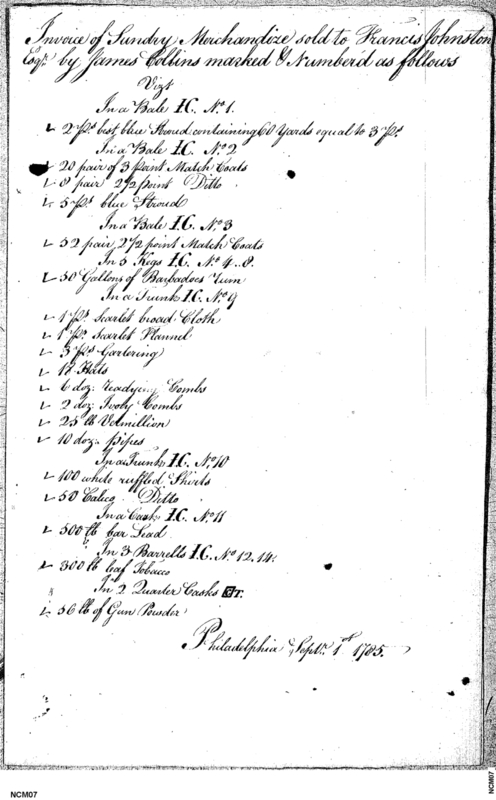 Invoice of Sundry Merchandize sold to Francis Johnston
Esqr. by James Collins marked & Numberd as follows
Vizt
In a Bale I.C. No 1.
2 Ps. best blue Stroud containing 60 Yards equal to 3 Ps.
In a Bale I.C. No 2
20 pair of 3 point Match Coats
8 pair 2½ point Ditto
5 Ps. blue Stroud
In a Bale I.C. No 3
52 pair 2½ point Match Coats
In 5 Kegs I.C. No 4..8.
50 Gallons of Barbadoes Rum
In a Trunk I.C. No 9
1 Ps. Scarlet broad Cloth
1 Ps. Scarlet Flannel
3 Ps. Gartering
18 Hats
6 doz. Combs
2 doz Ivory Combs
25 lb Vermillion
10 doz. pipes
In a Trunk I.C. No 10
100 white ruffled Shirts
50 Calico Ditto
In a Cask I.C. No 11
500 lb bar Lead
In 3 Barrells I.C. No 12.14.
300 lb leaf Tobacco
In 2 Quarter Casks
56 lb of Gun Powder
Philadelphia Septr. 1st 1785.
NCM07
NCM07